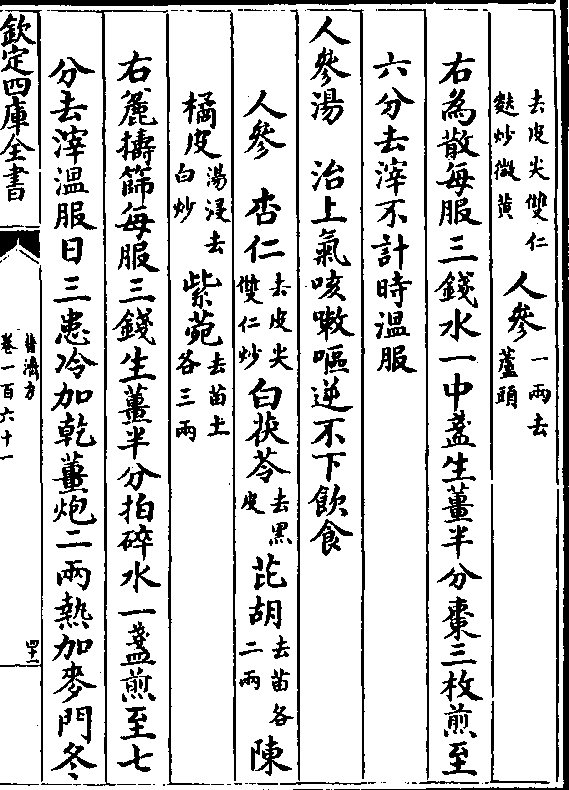 去皮尖雙仁麩炒微黄 人參一兩去蘆頭
右為散每服三錢水一中盞生薑半分棗三枚煎至
六分去滓不計時溫服
人參湯 治上氣咳嗽嘔逆不下飲食
人參 杏仁去皮尖雙仁炒 白茯苓去黑皮 茈胡去苗各二兩 陳
橘皮湯浸去白炒 紫菀去苗土各三兩
右麄擣篩每服三錢生薑半分拍碎水一盞煎至七
分去滓溫服日三患冷加乾薑炮二兩熱加麥門冬
欽定四庫全書
普濟方
卷一百六十一